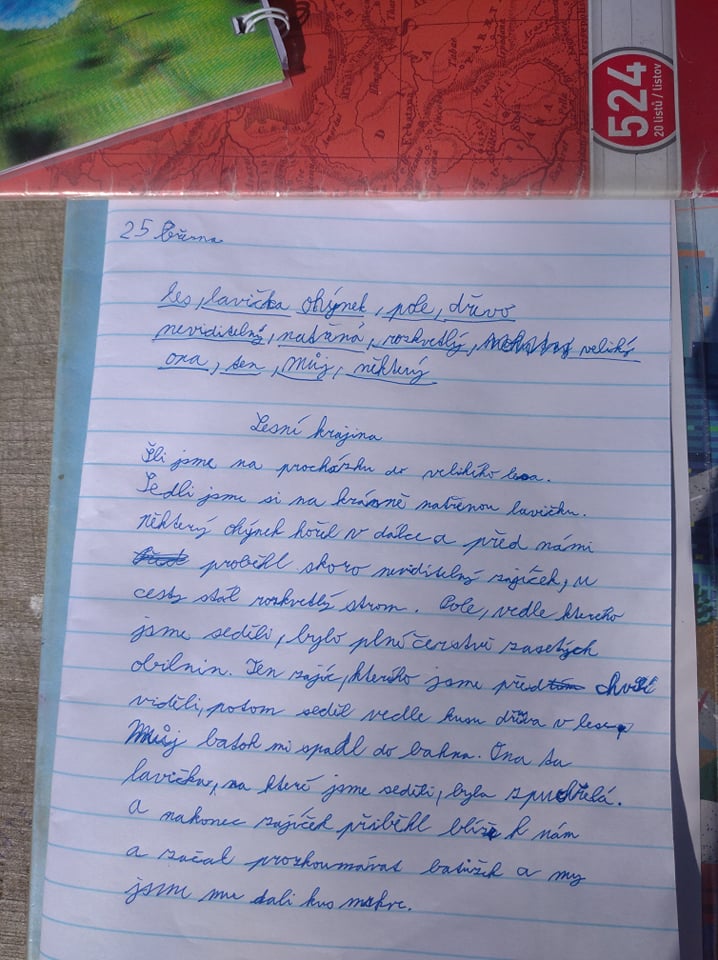 524
20 listů / listov
25 března
les, lavička ohýnek, pole, dřevo
neviditelný, natřená, rozkvetlý, veliký
ona, ten, můj, některý
Lesní krajina
Šli jsme na procházku do velikého lesa.
Sedli jsme si na krásně natřenou lavičku.
Některý ohýnek hořel v dálce a před námi
proběhl skoro neviditelný zajíček, u
cesty stál rozkvetlý strom. Pole, vedle kterého
jsme seděli, bylo plné čerstvě zasetých
obilnin. Ten zajíc, kterého jsme před chvílí
viděli, potom seděl vedle kusu dřeva v lese,
Můj batoh mi spadl do bahna. Ona ta
lavička, na které jsme seděli, byla zpuchřelá.
a nakonec zajíček přiběhl blíže k nám
a začal prozkoumávat batůžek a my
jsme mu dali kus mrkve.